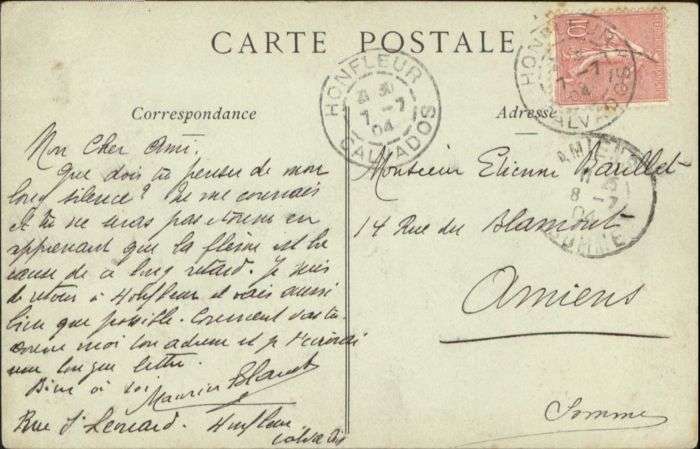 CARTE POSTALE
Correspondance
Adresse
HONFLEUR
7 -7
04
CALVADOS
10
HONFLEUR
7 -7
04
CALVADOS
AMIENS
8 -7
04
SOMME
Mon Cher Ami.
Que dois tu penser de mon
long silence? Tu me connais
et tu ne seras pas étonné en
apprenant que la flème est la
cause de ce long retard. Je suis
de retour à Honfleur et vais aussi
bien que possible. Comment vas tu.
Donne moi ton adresse et je t'écrirai
une longue lettre.
Bien à toi
Maurice
Rue St Léonard. Honfleur
Calvados
Monsieur Etienne
14 Rue du Blamont
Amiens
Somme